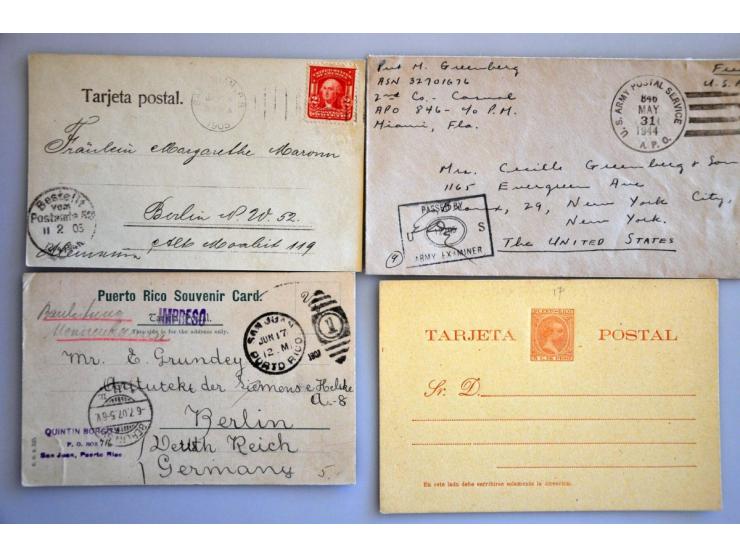 Tarjeta postal.
Fräulein Margarethe Maronn
Berlin N.W. 52.
Alt Moabit 119
Bestellt
vom
Postamte
11 2 05
1905
Pvt M. Greenberg
ASN 32701676
2nd Co. - Casual
APO 846 - c/o P.M.
Miami, Fla.
Free
U.S.
U. S. ARMY POSTAL SERVICE
846
MAY
31
1944
A. P. O.
Mrs. Cecille Greenberg & Son
1165 Evergreen Ave
Bronx, 29, New York City,
New York.
The UNITED STATES
PASSED BY
U S
ARMY EXAMINER
9
Puerto Rico Souvenir Card.
IMPRESO
This side is for the address only.
SAN JUAN
JUN 17
12 M
1907
PORTO RICO
1
Mr. E. Grundey
der Siemens & Halske
A.-8
Berlin
Deutsch Reich
Germany
5.
-6.7.07.5-6
QUINTIN
P. O. BOX 716
San Juan, Puerto Rico
17
TARJETA POSTAL
PUERTO-RICO
Sr. D.
En este lado debe escribirse solamente la dirección.